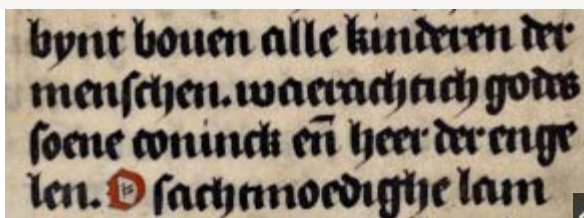 bynt bouen alle kinderen der
menſchen. waerachtich godes
ſoene coninck en̄ heer der enge
len. O ſachtmoedighe lam